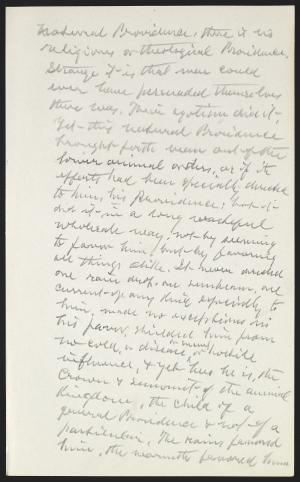 natural Providence, there is no
religious or theological Providence.
Strange it is that men could
ever have persuaded themselves
there was. Their egotism did it.
Yet this natural Providence
brought forth man out of the
lower animal orders, as if its
efforts had been specially directed
to him, his Providence; but it
did it in a long roundabout
wholesale way, not by seeming
to favor him, but by favoring
all things alike. It never directed
one rain drop, one sunbeam, one
current of any kind especially to
him, made no exceptions in
his favor, shielded him from
no cold, or disease, or hostile
influence, & yet here he is, the
crown & summit of the animal
Kingdom, the child of a
general Providence & not of a
particular. The rains favored
him, the warmth favored him